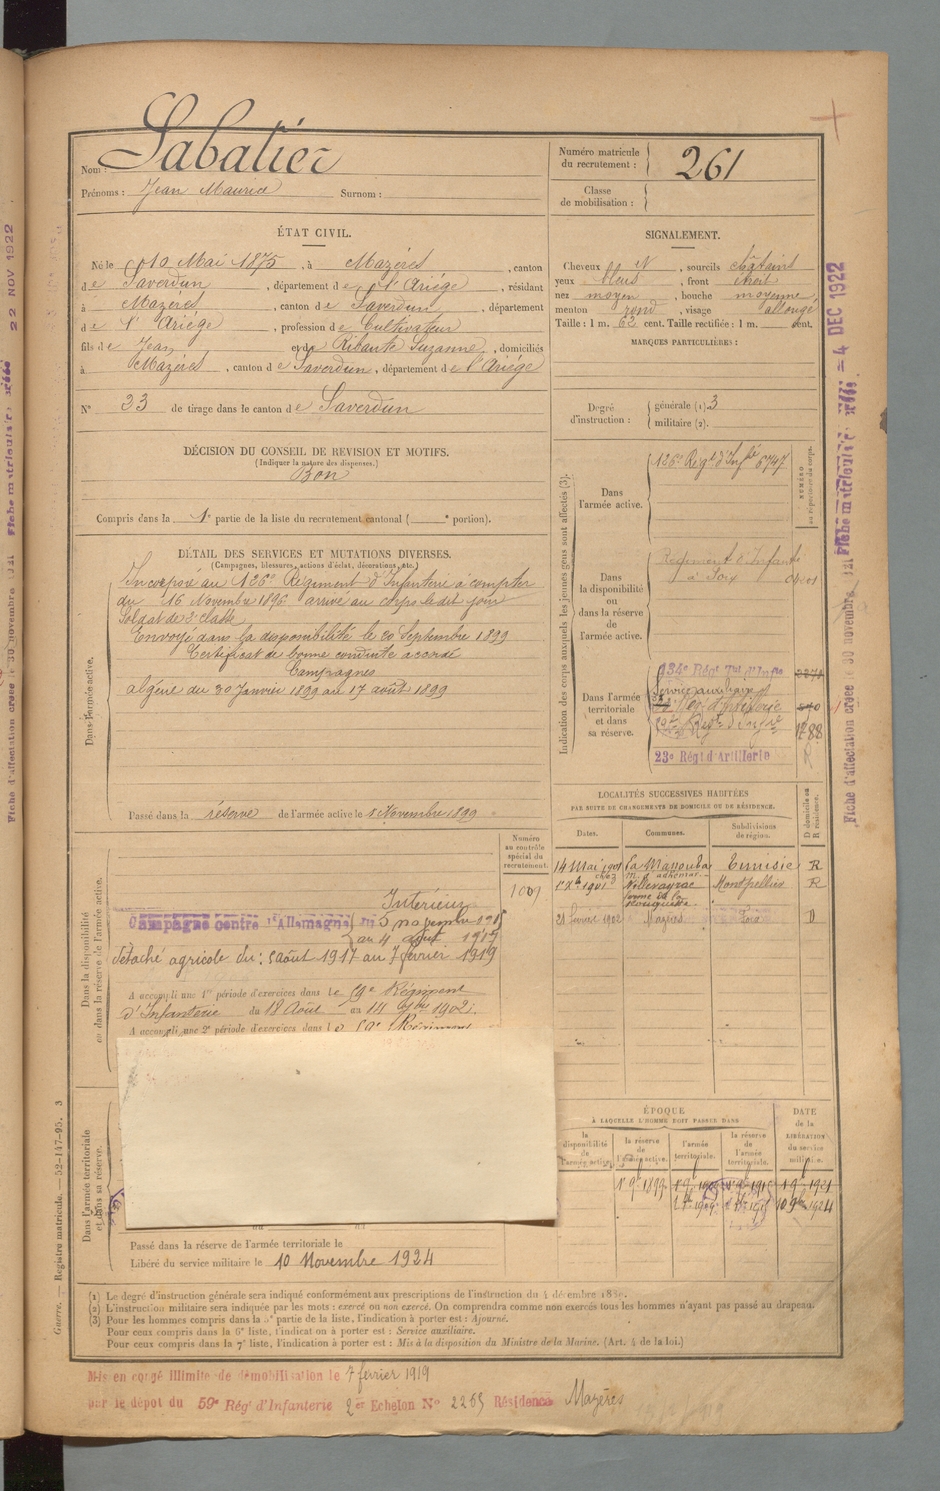 Nom : Sabatier
Prénoms : Jean Maurice Surnom :
Numéro matricule du recrutement : 261
Classe de mobilisation :
ÉTAT CIVIL.
Né le 10 Mai 1875, à Mazères, canton
de Saverdun, département de l'Ariège, résidant
à Mazères, canton de Saverdun, département
de l'Ariège, profession de Cultivateur
fils de Jean et de Ribaute Suzanne, domiciliés
à Mazères, canton de Saverdun, département de l'Ariège
N° 23 de tirage dans le canton de Saverdun
SIGNALEMENT.
Cheveux N, sourcils châtains
yeux bleus, front étroit
nez moyen, bouche moyenne,
menton rond, visage allongé
Taille : 1 m. 62 cent. Taille rectifiée : 1 m. cent.
MARQUES PARTICULIÈRES :
Degré d'instruction : générale (1) 3
militaire (2).
DÉCISION DU CONSEIL DE REVISION ET MOTIFS.
(Indiquer la nature des dispenses.)
Bon
Compris dans la 1e partie de la liste du recrutement cantonal ( portion).
DÉTAIL DES SERVICES ET MUTATIONS DIVERSES.
(Campagnes, blessures, actions d'éclat, décorations, etc.)
Dans l'armée active.
Incorporé au 126e Régiment d'Infanterie à compter
du 16 Novembre 1896 arrivé au corps le dit jour
Soldat de 2e classe
Envoyé dans la disponibilité le 20 Septembre 1899
Certificat de bonne conduite accordé
Campagnes
Algérie du 30 Janvier 1899 au 17 août 1899
Passé dans la réserve de l'armée active le 1 Novembre 1899
Indication des corps auxquels les jeunes gens sont affectés (3).
NUMÉRO au répertoire du corps.
Dans l'armée active.
126e Régt d'Infie 6747
Dans la disponibilité ou dans la réserve de l'armée active.
Régiment d'Infanterie
à Foix
Dans l'armée territoriale et dans sa réserve.
134e Régt Tal d'Infie
Service auxiliaire
23e Régt d'Artillerie
LOCALITÉS SUCCESSIVES HABITÉES
PAR SUITE DE CHANGEMENTS DE DOMICILE OU DE RÉSIDENCE.
Dates. Communes. Subdivisions de région. D domicile ou R résidence.
14 Mai 1901 La Manouba Tunisie R
1901 chez M. Villeveyrac Montpellier R
21 février 1902 Mazères Foix D
Numéro au contrôle spécial du recrutement.
1001
Dans la disponibilité ou dans la réserve de l'armée active.
Intérieur
Campagne contre l'Allemagne du 5 novembre 1915
au 4 août 1917
détaché agricole du : 5 août 1917 au 7 février 1919
A accompli une 1re période d'exercices dans le 59e Régiment
d'Infanterie du 18 Août au 14 7bre 1902.
A accompli une 2e période d'exercices dans le 59e Régiment
Dans l'armée territoriale et dans sa réserve.
ÉPOQUE
À LAQUELLE L'HOMME DOIT PASSER DANS
la disponibilité de l'armée active. la réserve de l'armée active. l'armée territoriale. la réserve de l'armée territoriale.
DATE de la LIBÉRATION du service militaire.
1er 9bre 1899
10 9bre 1924
Passé dans la réserve de l'armée territoriale le
Libéré du service militaire le 10 Novembre 1924
(1) Le degré d'instruction générale sera indiqué conformément aux prescriptions de l'instruction du 4 décembre 1889.
(2) L'instruction militaire sera indiquée par les mots : exercé ou non exercé. On comprendra comme non exercés tous les hommes n'ayant pas passé au drapeau.
(3) Pour les hommes compris dans la 5e partie de la liste, l'indication à porter est : Ajourné.
Pour ceux compris dans la 6e liste, l'indication à porter est : Service auxiliaire.
Pour ceux compris dans la 7e liste, l'indication à porter est : Mis à la disposition du Ministre de la Marine. (Art. 4 de la loi.)
Mis en congé illimité de démobilisation le 7 février 1919
par le dépôt du 59e Rég' d'Infanterie 2e Echelon N° 2265 Résidence Mazères
Guerre. — Registre matricule. — 52-147-95. 3
Fiche d'affectation créée le 30 novembre
Fiche matricule
22 NOV 1922
Fiche d'affectation créée le 30 novembre
Fiche matricule
4 DEC 1922